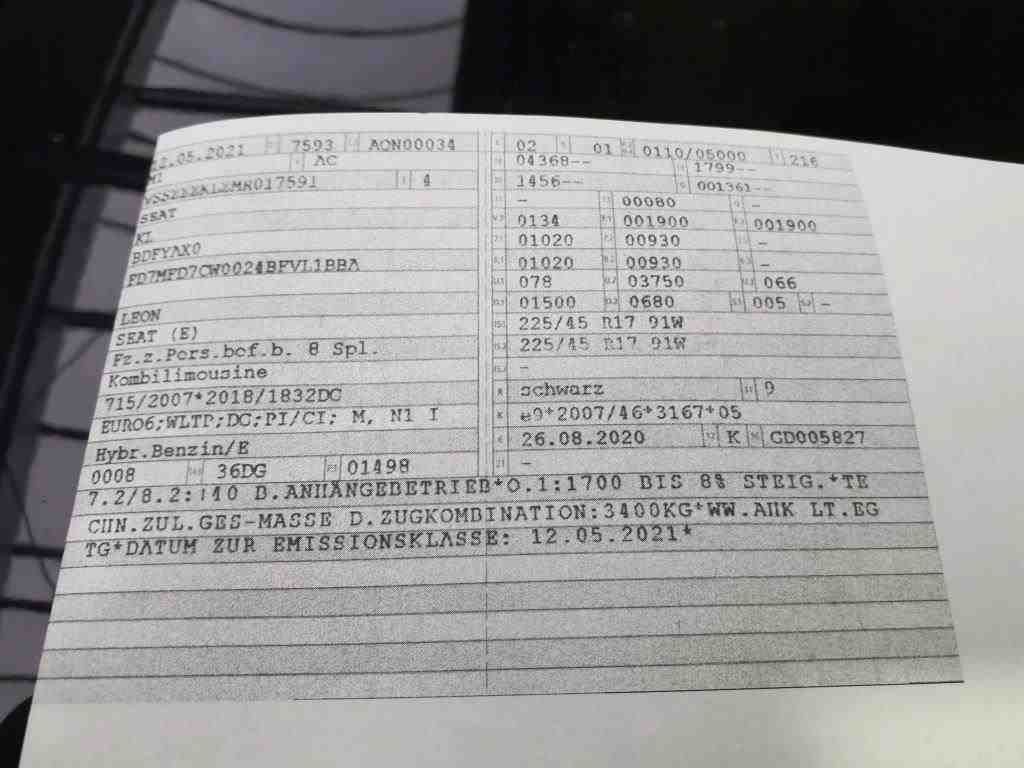 12.05.2021 7593 AON00034
M1 AC
4
SEAT
KL
BDFYAX0
FD7MFD7CW0024BFVL1BBA
LEON
SEAT (E)
Fz.z.Pers.bef.b. 8 Spl.
Kombilimousine
715/2007*2018/1832DG
EURO6;WLTP;DG;PI/CI; M, N1 I
Hybr.Benzin/E
0008 36DG 01498
02 01 0110/05000 216
04368-- 1799--
1456-- 001361--
- 00080 -
0134 001900 001900
01020 00930 -
01020 00930 -
078 03750 066
01500 0680 005 -
225/45 R17 91W
225/45 R17 91W
-
schwarz 9
e9*2007/46*3167*05
26.08.2020 K GD005827
-
7.2/8.2:+40 B.ANHÄNGEBETRIEB*O.1:1700 BIS 8% STEIG.*TE
CHN.ZUL.GES-MASSE D.ZUGKOMBINATION:3400KG*WW.AHK LT.EG
TG*DATUM ZUR EMISSIONSKLASSE: 12.05.2021*